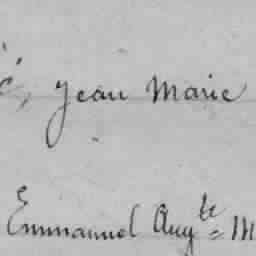 , Jean Marie
Emmanuel Aug^te = M